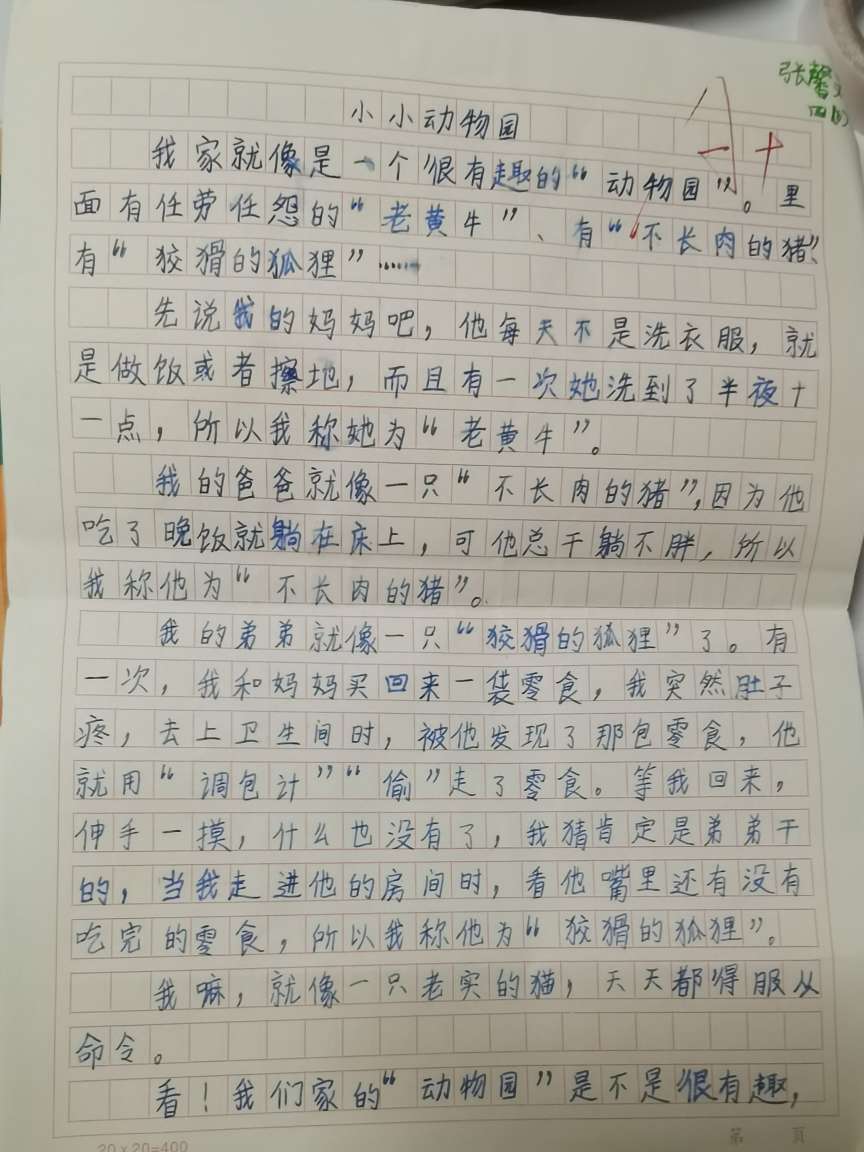 张馨
四(1)
小小动物园
我家就像是一个很有趣的“动物园”。里
面有任劳任怨的“老黄牛”、有“不长肉的猪”、
有“狡猾的狐狸”……
先说我的妈妈吧，他每天不是洗衣服，就
是做饭或者擦地，而且有一次她洗到了半夜十
一点，所以我称她为“老黄牛”。
我的爸爸就像一只“不长肉的猪”，因为他
吃了晚饭就躺在床上，可他总干躺不胖，所以
我称他为“不长肉的猪”。
我的弟弟就像一只“狡猾的狐狸”了。有
一次，我和妈妈买回来一袋零食，我突然肚子
疼，去上卫生间时，被他发现了那包零食，他
就用“调包计”“偷”走了零食。等我回来，
伸手一摸，什么也没有了，我猜肯定是弟弟干
的，当我走进他的房间时，看他嘴里还有没有
吃完的零食，所以我称他为“狡猾的狐狸”。
我嘛，就像一只老实的猫，天天都得服从
命令。
看！我们家的“动物园”是不是很有趣，
20×20=400
第 页